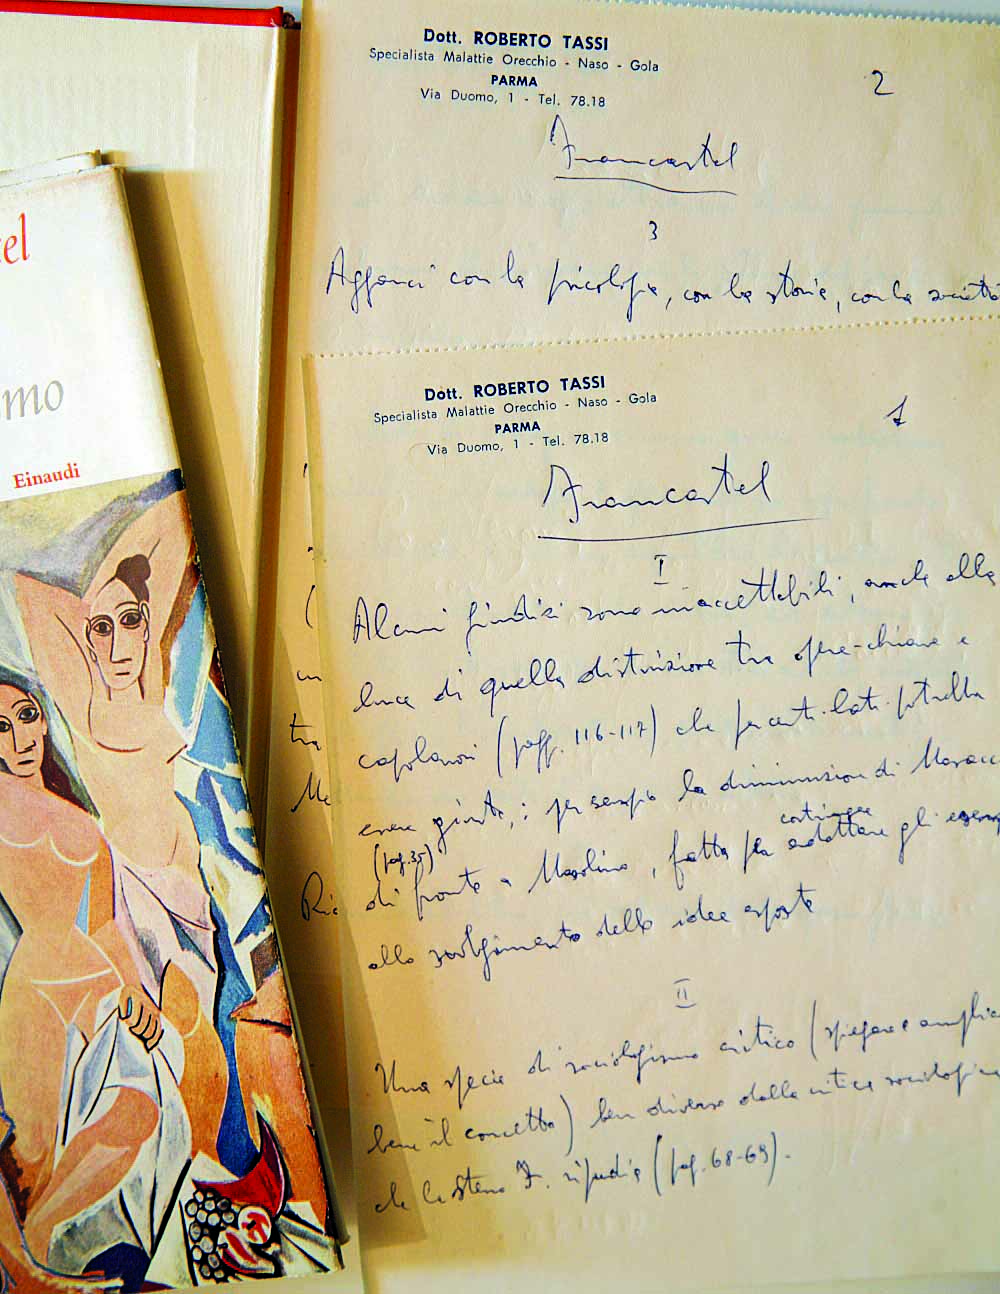 cel
mo
Einaudi
Dott. ROBERTO TASSI
Specialista Malattie Orecchio - Naso - Gola
PARMA
Via Duomo, 1 - Tel. 78.18
2
Francastel
3
Agganci con la psicologia, con la storia, con la società
Dott. ROBERTO TASSI
Specialista Malattie Orecchio - Naso - Gola
PARMA
Via Duomo, 1 - Tel. 78.18
1
Francastel
I
Alcuni giudizi sono inaccettabili, anche alla
luce di quella distinzione tra opere-chiave e
capolavori (pagg. 116-117) che per certi lati potrebbe
essere giusta; per esempio la diminuzione di Masacc
(pag. 35)
di fronte a Masolino, fatta per adattare gli
allo svolgimento delle idee esposte
II
Una specie di sociologismo critico (spiegare e amplia
bene il concetto) ben diverso dalla critica sociologica
che lo stesso F. ripudia (pag. 68-69).
un
tra
Me
Ric